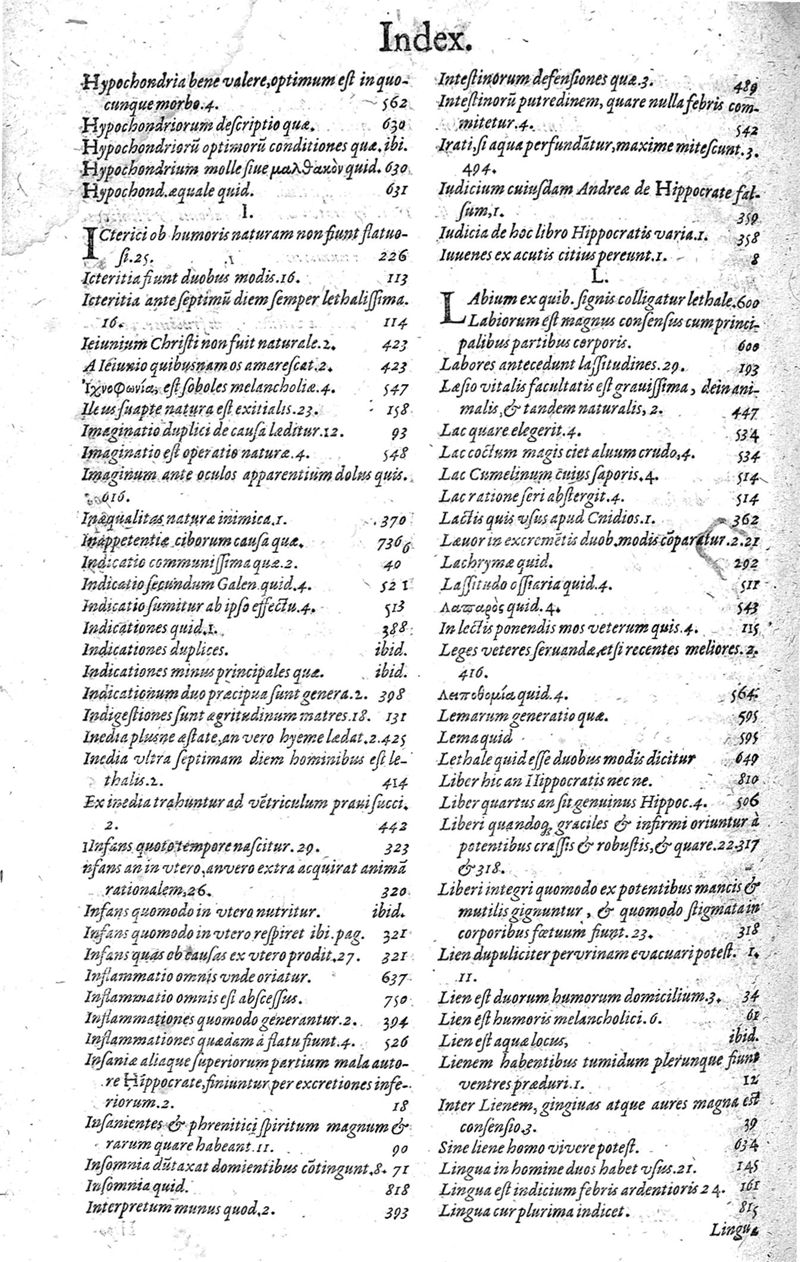 Index.
Hypochondria bene valere, optimum est in quo-
cunque morbo.4. 562
Hypochondriorum descriptio quæ. 630
Hypochondriorũ optimorũ conditiones quæ, ibi.
Hypochondrium molle siue μαλθακὸν quid. 630
Hypochond. æquale quid. 631
I.
ICterici ob humoris naturam non fiunt flatuo-
si.25. 226
Icteritia fiunt duobus modis.16. 113
Icteritia ante septimũ diem semper lethalissima.
16. 114
Ieiunium Christi non fuit naturale.2. 423
A Ieiunio quibusnam os amarescat.2. 423
Ἰχνοφωνία, est soboles melancholiæ.4. 547
Ileus suapte natura est exitialis.23. 158
Imaginatio duplici de causa læditur.12. 93
Imaginatio est operatio naturæ.4. 548
Imaginum ante oculos apparentium dolus quis.
616.
Inæqualitas naturæ inimica.1. 370
Inappetentiæ ciborum causa quæ. 736
Indicatio communissima quæ.2. 40
Indicatio secundum Galen. quid.4. 521
Indicatio sumitur ab ipso effectu.4. 513
Indicationes quid.1. 388
Indicationes duplices. ibid.
Indicationes minus principales quæ. ibid.
Indicationum duo præcipua sunt genera.2. 398
Indigestiones sunt ægritudinum matres.18. 131
Inedia plusne æstate, an vero hyeme lædat.2.425
Inedia vltra septimam diem hominibus est le-
thalis.2. 414
Ex inedia trahuntur ad vẽtriculum praui succi.
2. 442
IInfans quoto tempore nascitur.29. 323
nfans an in vtero, an vero extra acquirat animã
rationalem,26. 320
Infans quomodo in vtero nutritur. ibid.
Infans quomodo in vtero respiret ibi.pag. 321
Infans quas ob causas ex vtero prodit.27. 321
Inflammatio omnis vnde oriatur. 637
Inflammatio omnis est abscessus. 750
Inflammationes quomodo generantur.2. 394
Inflammationes quædam à flatu fiunt.4. 526
Insaniæ aliaque superiorum partium mala auto-
re Hippocrate, finiuntur per excretiones infe-
riorum.2. 18
Insanientes & phrenitici spiritum magnum &
rarum quare habeant.11. 90
Insomnia dũtaxat domientibus cõtingunt.8. 71
Insomnia quid. 818
Interpretum munus quod.2. 393
Intestinorum defensiones quæ.3. 489
Intestinorũ putredinem, quare nulla febris com-
mitetur.4. 542
Irati, si aqua perfundãtur, maxime mitescunt.3.
494.
Iudicium cuiusdam Andreæ de Hippocrate fal-
sum,1. 359
Iudicia de hoc libro Hippocratis varia.1. 358
Iuuenes ex acutis citius pereunt.1. 8
L.
LAbium ex quib. signis colligatur lethale.600
Labiorum est magnus consensus cum princi-
palibus partibus corporis. 600
Labores antecedunt lassitudines.29. 193
Læsio vitalis facultatis est grauissima, dein ani-
malis, & tandem naturalis, 2. 447
Lac quare elegerit.4. 534
Lac coctum magis ciet aluum crudo,4. 534
Lac Cumelinum cuius saporis.4. 514
Lac ratione seri abstergit.4. 514
Lactis quis vsus apud Cnidios.1. 362
Læuor in excremẽtis duob. modis cõparatur.2.21
Lachrymæ quid. 292
Lassitudo ossiaria quid.4. 511
Λαπαρὸς quid.4. 543
In lectis ponendis mos veterum quis.4. 115
Leges veteres seruandæ, etsi recentes meliores.2.
416.
Λειποθυμία quid.4. 564
Lemarum generatio quæ. 595
Lema quid 595
Lethale quid esse duobus modis dicitur 649
Liber hic an Hippocratis nec ne. 810
Liber quartus an sit genuinus Hippoc.4. 506
Liberi quandoq; graciles & infirmi oriuntur à
potentibus crassis & robustis, & quare.22.317
& 318.
Liberi integri quomodo ex potentibus mancis &
mutilis gignuntur, & quomodo stigmata in
corporibus fœtuum fiunt.23. 318
Lien dupuliciter per vrinam evacuari potest. 1.
11.
Lien est duorum humorum domicilium.3. 34
Lien est humoris melancholici.6. 61
Lien est aquæ locus, ibid.
Lienem habentibus tumidum plerunque fiunt
ventres præduri.1. 12
Inter Lienem, gingiuas atque aures magna est
consensio.3. 39
Sine liene homo vivere potest. 634
Lingua in homine duos habet vsus.21. 145
Lingua est indicium febris ardentioris 24. 161
Lingua cur plurima indicet. 815
Lingua